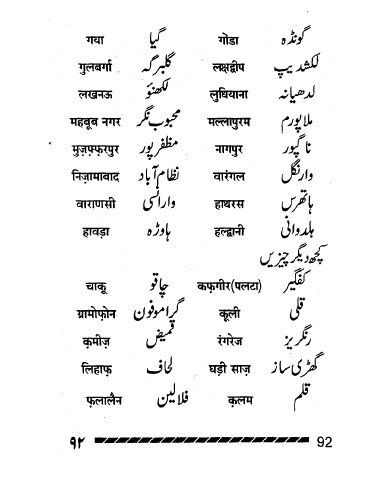 गया گیا गोंडा گونڈہ
गुलबर्गा گلبرگہ लक्षद्वीप لکشدیپ
लखनऊ لکھنؤ लुधियाना لدھیانہ
महबूब नगर محبوب نگر मल्लापुरम ملاپورم
मुज़फ़्फ़रपुर مظفر پور नागपुर ناگپور
निज़ामाबाद نظام آباد वारंगल وارنگل
वाराणसी وارانسی हाथरस ہاتھرس
हावड़ा ہاوڑہ हल्द्वानी ہلدوانی
کچھ دیگر چیزیں
चाकू چاقو कफ़गीर(पलटा) کفگیر
ग्रामोफ़ोन گراموفون कूली قلی
क़मीज़ قمیض रंगरेज رنگریز
लिहाफ़ لحاف घड़ी साज़ گھڑی ساز
फ़लालैन فلالین क़लम قلم
९२ 92